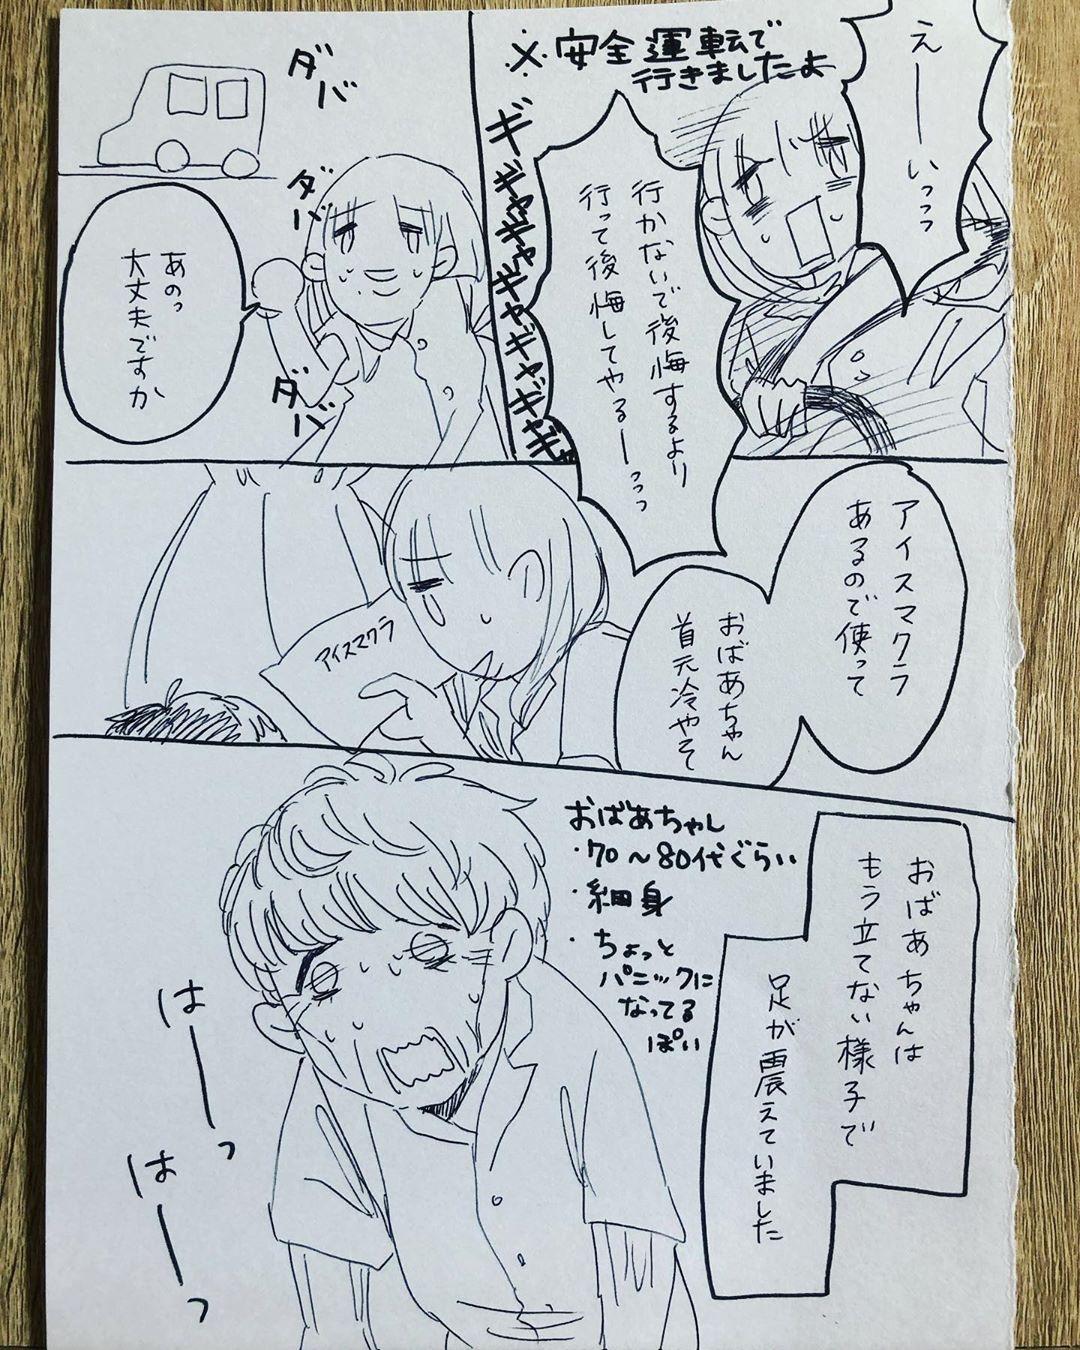 えーーいっっっ
※安全運転で
行きましたよ
行かないで後悔するより
行って後悔してやるーーっっっ
ギギャギャギャギャギャギャ
ダバ
ダバ
ダバ
あのっ
大丈夫ですか
アイスマクラ
あるので使って
おばあちゃん
首元冷やそ
アイスマクラ
おばあちゃんは
もう立てない様子で
足が震えていました
おばあちゃん
・70～80代ぐらい
・細身
・ちょっと
パニックに
なってる
ぽい
はーーっ
はーーっ